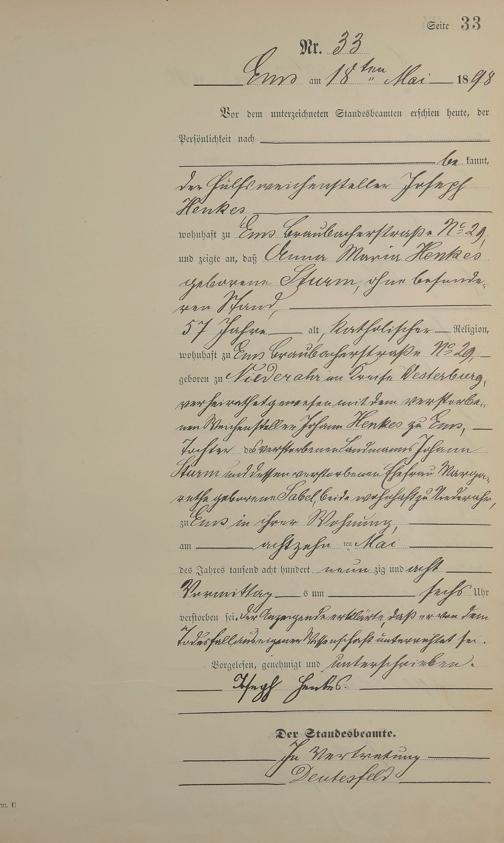 Seite 33
Nr. 33
Ems am 18ten Mai 1898
Vor dem unterzeichneten Standesbeamten erschien heute, der
Persönlichkeit nach
be kannt,
der Hülfsweichensteller Joseph
Henkes
wohnhaft zu Ems Braubacherstraße No 29,
und zeigte an, daß Anna Maria Henkes
geborene Sturm, ohne besonde-
ren Stand,
57 Jahre alt, katholischer Religion,
wohnhaft zu Ems Braubacherstraße No 29,
geboren zu Niederahr im Kreise Westerburg,
verheirathet gewesen mit dem verstorbe-
nen Weichensteller Johann Henkes zu Ems,
Tochter des verstorbenen Landmanns Johann
Sturm und dessen verstorbenen Ehefrau Marga-
rethe geborene Sabel, beide wohnhaft zu Niederahr,
zu Ems in ihrer Wohnung,
am achtzehn ten Mai
des Jahres tausend acht hundert neun zig und acht
Vormittag s um sechs Uhr
verstorben sei. Der Anzeigende erklärte, daß er von dem
Todesfall aus eigener Wissenschaft unterrichtet sei.
Vorgelesen, genehmigt und unterschrieben.
Joseph Henkes.
Der Standesbeamte.
In Vertretung